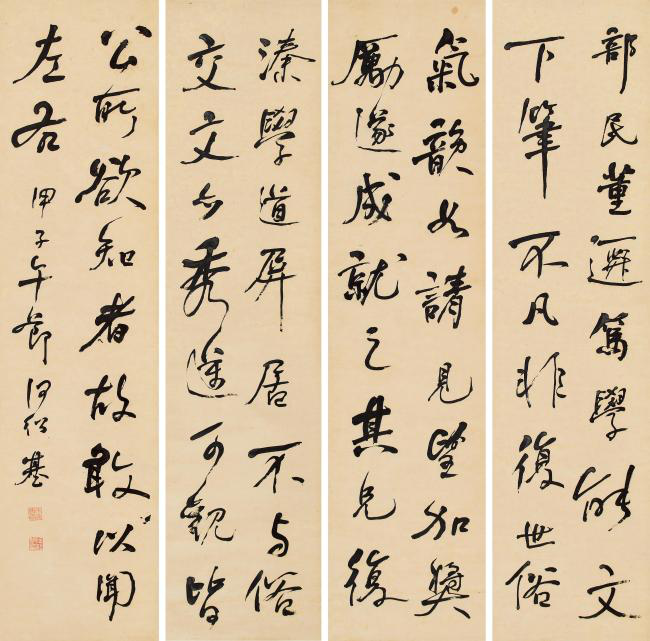 部民董遷篤學能文
下筆不凡非復世俗
氣韻如請見望加獎
勵遂成就之其兄復
溱學道屏居不与俗
交文亦秀邁可觀皆
公所欲知者故敢以聞
左右 甲子午節 何紹基